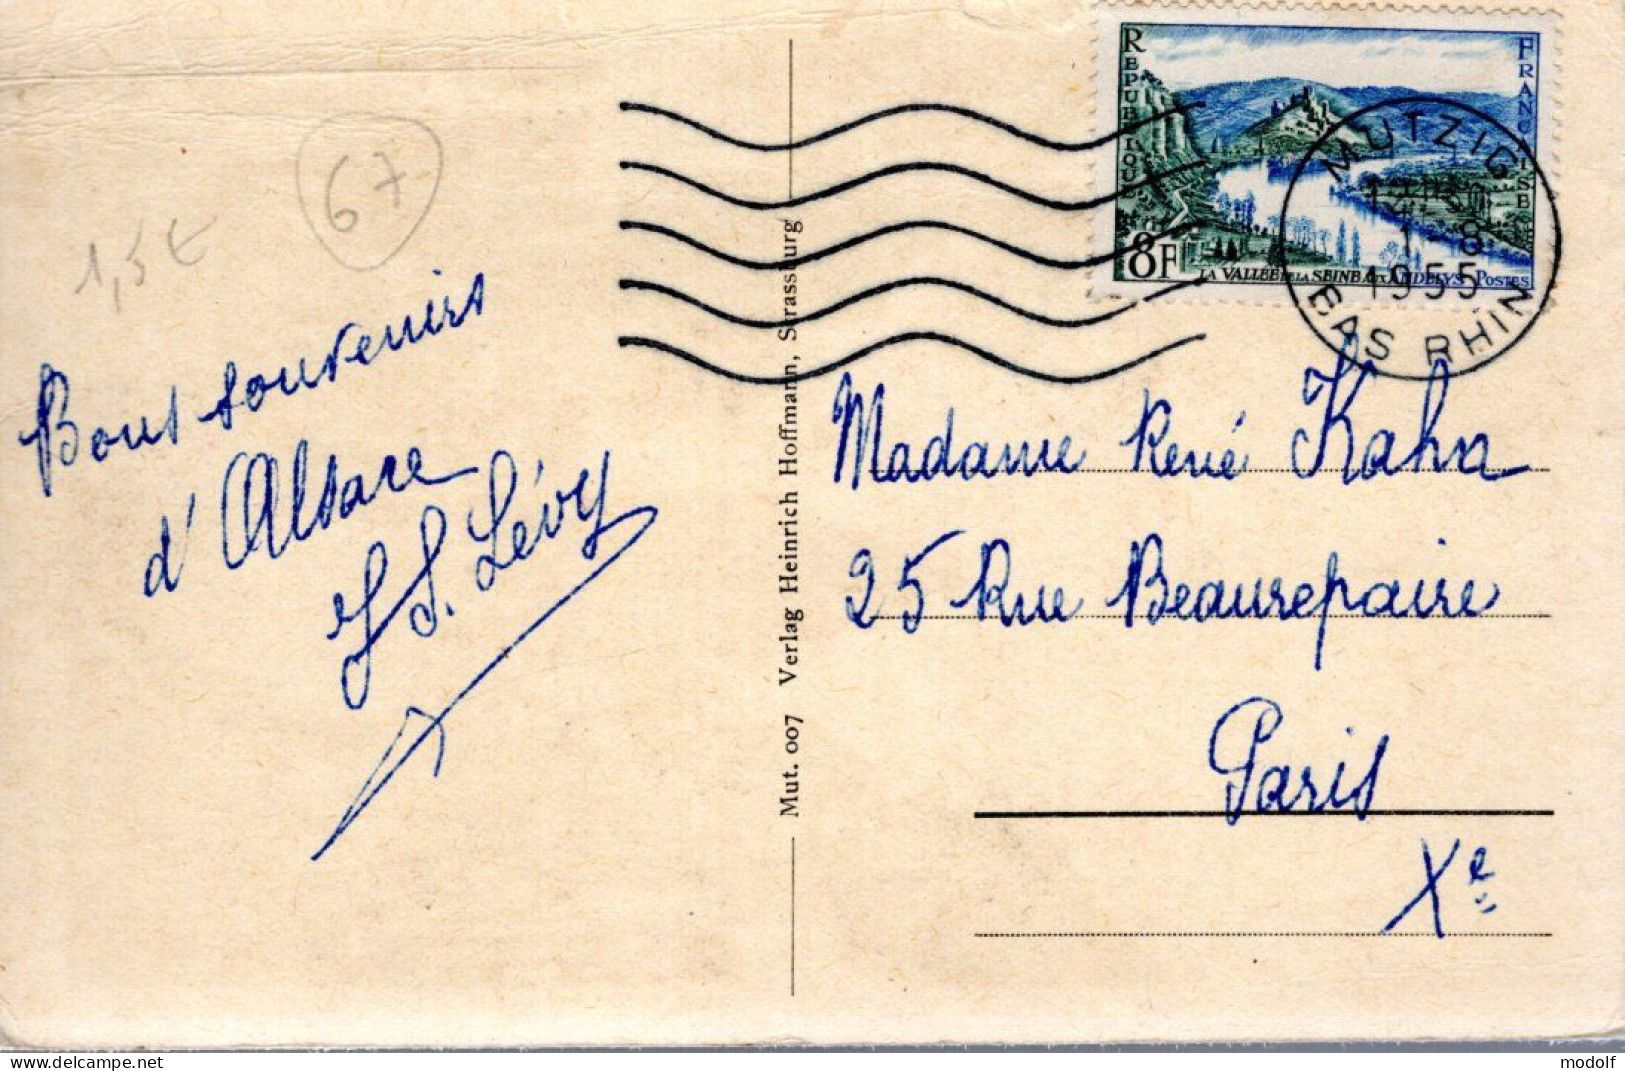 1,5€
67
Bons souvenirs
d'Alsace
S. Lévy
Mut. 007 Verlag Heinrich Hoffmann, Strassburg
RÉPUBLIQUE
FRANÇAISE
8F
LA VALLÉE DE LA SEINE AUX ANDELYS POSTES
MUTZIG
1 - 8
1955
BAS RHIN
Madame René Kahn
25 Rue Beaurepaire
Paris
Xe
modolf